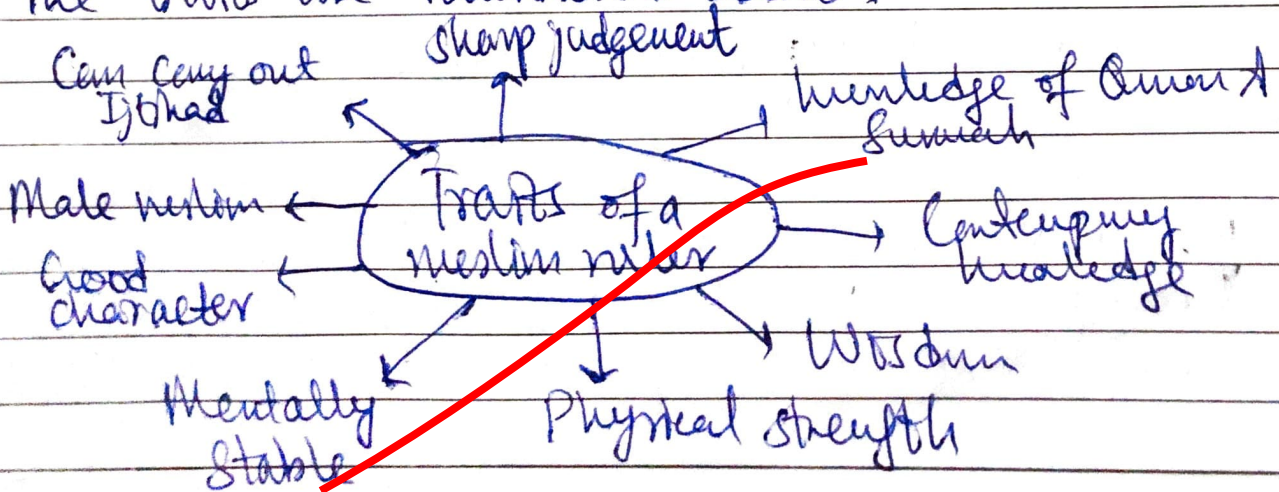 The
sharp judgement
Can Carry out
Ijtihad
knowledge of Quran &
Sunnah
Male muslim
Traits of a
muslim ruler
Contempury
knowledge
Good
character
Wisdom
Mentally
Stable
Physical strength